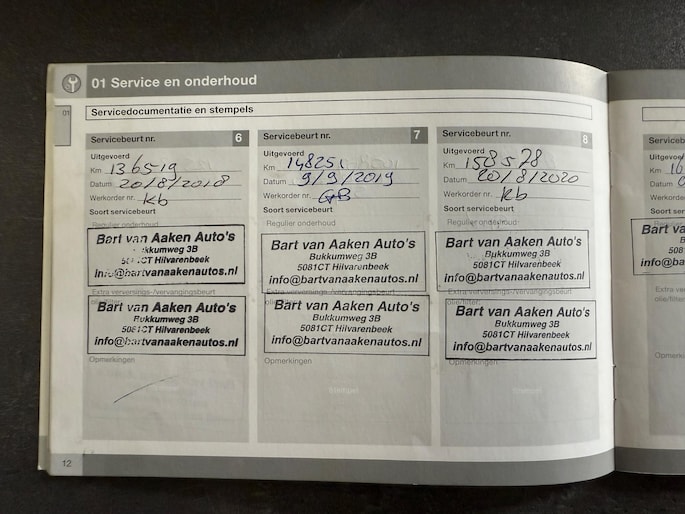 01 Service en onderhoud
01
Servicedocumentatie en stempels
Servicebeurt nr. 6
Uitgevoerd
Km 136519
Datum 20/8/2018
Werkorder nr. kb
Soort servicebeurt
Regulier onderhoud
Bart van Aaken Auto's
Bukkumweg 3B
5081CT Hilvarenbeek
info@bartvanaakenautos.nl
Extra verversings-/vervangingsbeurt
olie/filter:
Bart van Aaken Auto's
Bukkumweg 3B
5081CT Hilvarenbeek
info@bartvanaakenautos.nl
Opmerkingen
Servicebeurt nr. 7
Uitgevoerd
Km 148251
Datum 9/9/2019
Werkorder nr. GB
Soort servicebeurt
Regulier onderhoud
Bart van Aaken Auto's
Bukkumweg 3B
5081CT Hilvarenbeek
info@bartvanaakenautos.nl
Extra verversings-/vervangingsbeurt
olie/filter:
Bart van Aaken Auto's
Bukkumweg 3B
5081CT Hilvarenbeek
info@bartvanaakenautos.nl
Opmerkingen
Stempel
Servicebeurt nr. 8
Uitgevoerd
Km 158578
Datum 20/8/2020
Werkorder nr. kb
Soort servicebeurt
Regulier onderhoud
Bart van Aaken Auto's
Bukkumweg 3B
5081CT Hilvarenbeek
info@bartvanaakenautos.nl
Extra verversings-/vervangingsbeurt
olie/filter:
Bart van Aaken Auto's
Bukkumweg 3B
5081CT Hilvarenbeek
info@bartvanaakenautos.nl
Opmerkingen
Stempel
12
Servicebeurt
Uitgevoerd
Km
Datum
Werkorder
Soort service
Bart
info@
Extra
olie/filter:
Opmerking